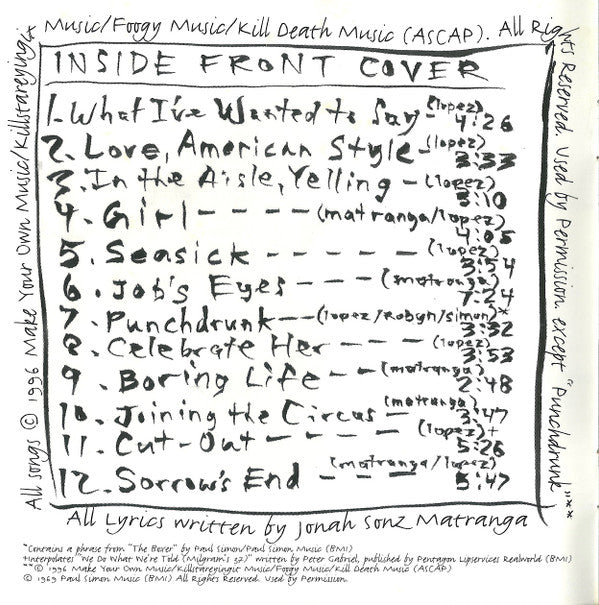 Music/Foogy Music/Kill Death Music (ASCAP). All Rights Reserved. Used by Permission. except "Punchdrunk"**
INSIDE FRONT COVER
1. What I've Wanted to Say - (lopez) 4:26
2. Love, American Style - (lopez) 3:33
3. In the Aisle, Yelling - (lopez) 3:10
4. Girl - - - - (matranga/lopez) 4:05
5. Seasick - - - - - (lopez) 3:54
6. Job's Eyes - - - - (matranga) 7:24
7. Punchdrunk - - (lopez/Robyn/simon)* 3:32
8. Celebrate Her - - - (lopez) 3:53
9. Boring Life - - (matranga) 2:48
10. Joining the Circus - (matranga) 3:47
11. Cut-Out - - - - - (lopez)+ 5:26
12. Sorrow's End - - - (matranga/lopez) 5:47
All songs © 1996 Make Your Own Music/Killstareyingit
All Lyrics written by Jonah Sonz Matranga
*Contains a phrase from "The Boxer" by Paul Simon/Paul Simon Music (BMI)
+Interpolates "We Do What We're Told (Milgram's 37)" written by Peter Gabriel, published by Pentagon Lipservices Realworld (BMI)
** © 1996 Make Your Own Music/Killstareyingit Music/Foogy Music/Kill Death Music (ASCAP)
© 1969 Paul Simon Music (BMI) All Rights Reserved. Used by Permission.